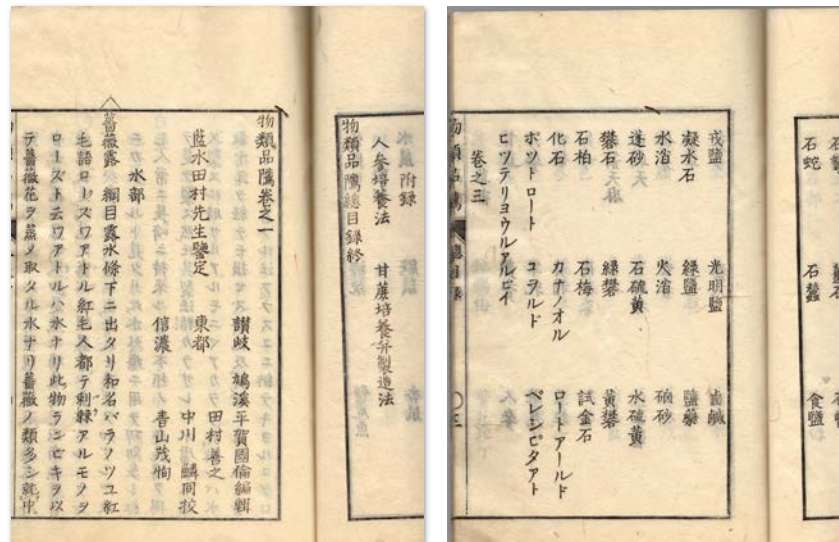 物類品隲總目録終
人參培養法　甘蔗培養幷製造法
附録
物類品隲卷之一
讃岐　鳩溪平賀國倫編輯
藍水田村先生鑒定　東都　田村善之
中川麟同挍
信濃　青山茂恂
水部
薔薇露　綱目露水條下ニ出タリ和名バラノツユ紅
毛語ローズワアトル紅毛人都テ刺棘アルモノヲ
ローズト云ワアトルハ水ナリ此物ランビキヲ以
テ薔薇花ヲ蒸メ取タル水ナリ薔薇ノ類多シ就中
石蛇　石蠶　食鹽
戎鹽　光明鹽　鹵鹹
凝水石　緑鹽　鹽藥
水湆　火湆　硇砂
蓬砂　石硫黄　水硫黄
礬石　緑礬　黄礬
石柏　石梅　試金石
化石　カナノオル　ロートアールド
ボツトロート　コラルド　ペレシピタアト
ヒッテリヨウルアルビイ
卷之三
物類品隲　總目録　〇三